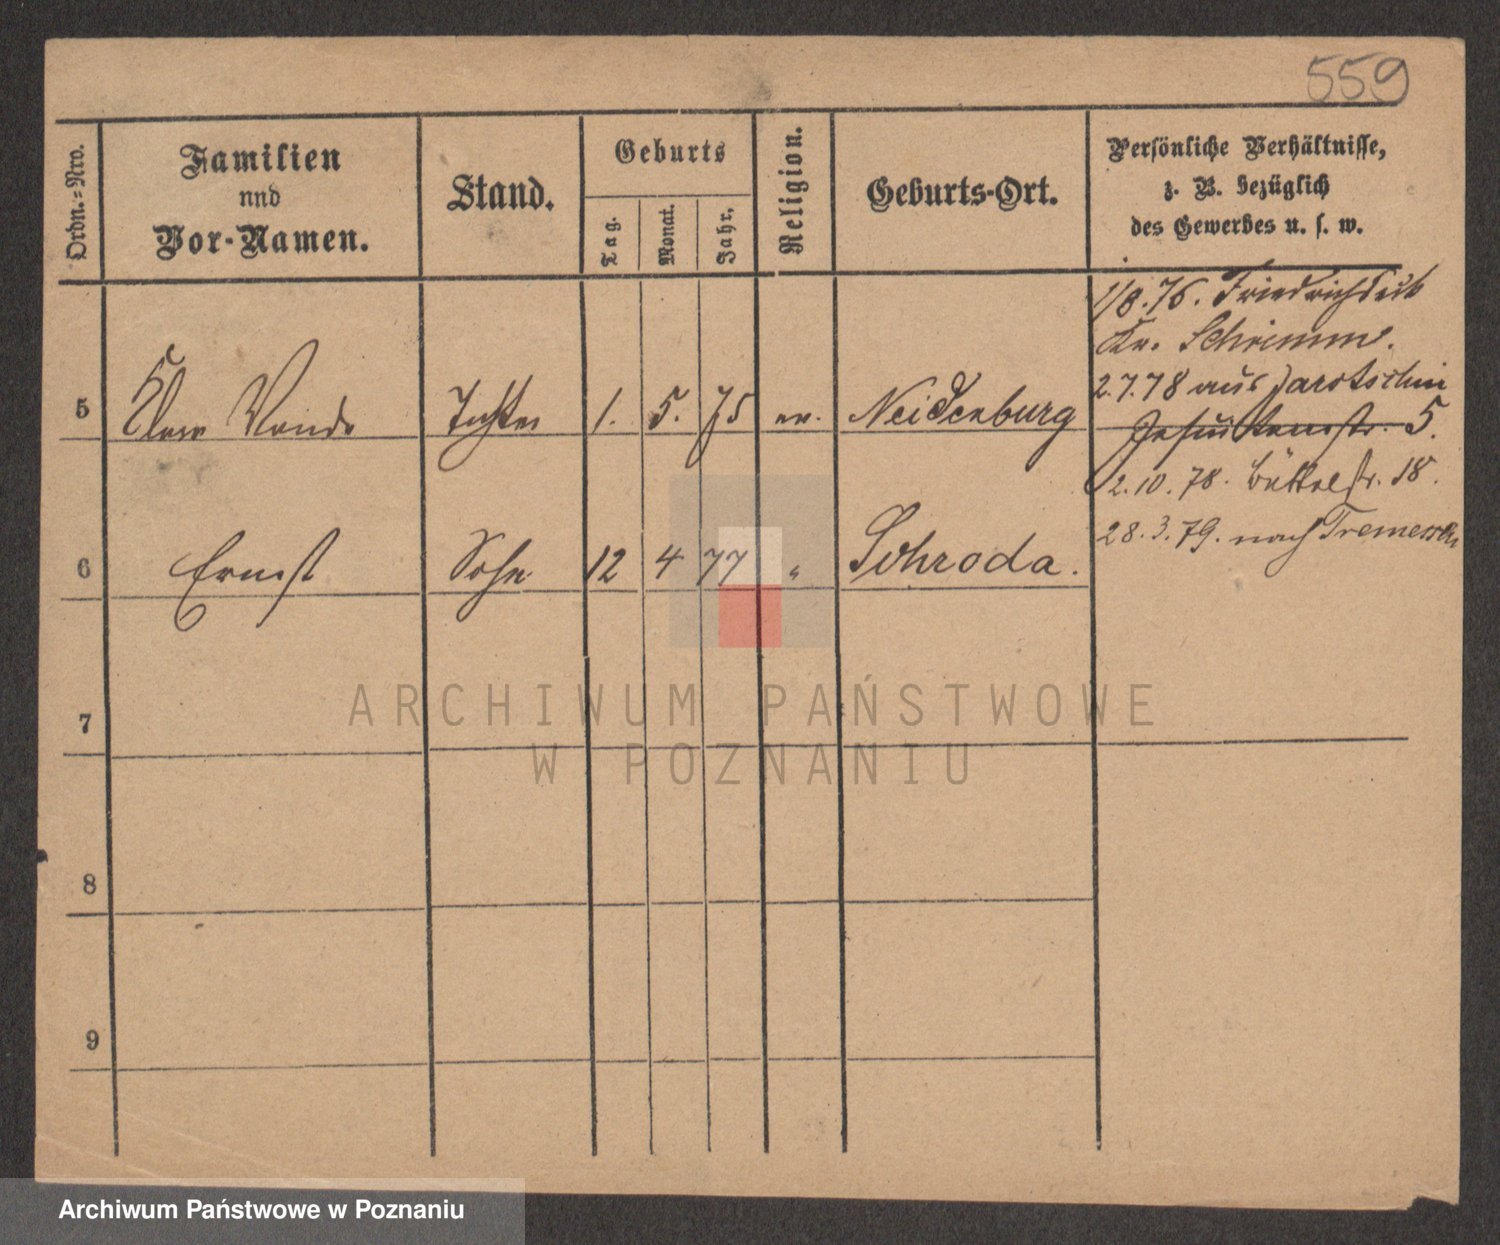 559
Ordn.=Nro.
Familien
nnd
Vor-Namen.
Stand.
Geburts
Tag.
Monat.
Jahr.
Religion.
Geburts-Ort.
Persönliche Verhältnisse,
z. B. bezüglich
des Gewerbes u. s. w.
1/8.76.
Kr. Schrimm.
2.7.78 aus Jarotschin
Jesuitenstr. 5.
2.10.78. Büttelstr. 18.
28.3.79. nach Tremessen
5 Tochter 1. 5. 75 ev. Neidenburg
6 Ernst Sohn 12 4 77 " Schroda.
7
8
9
ARCHIWUM PAŃSTWOWE
W POZNANIU
Archiwum Państwowe w Poznaniu